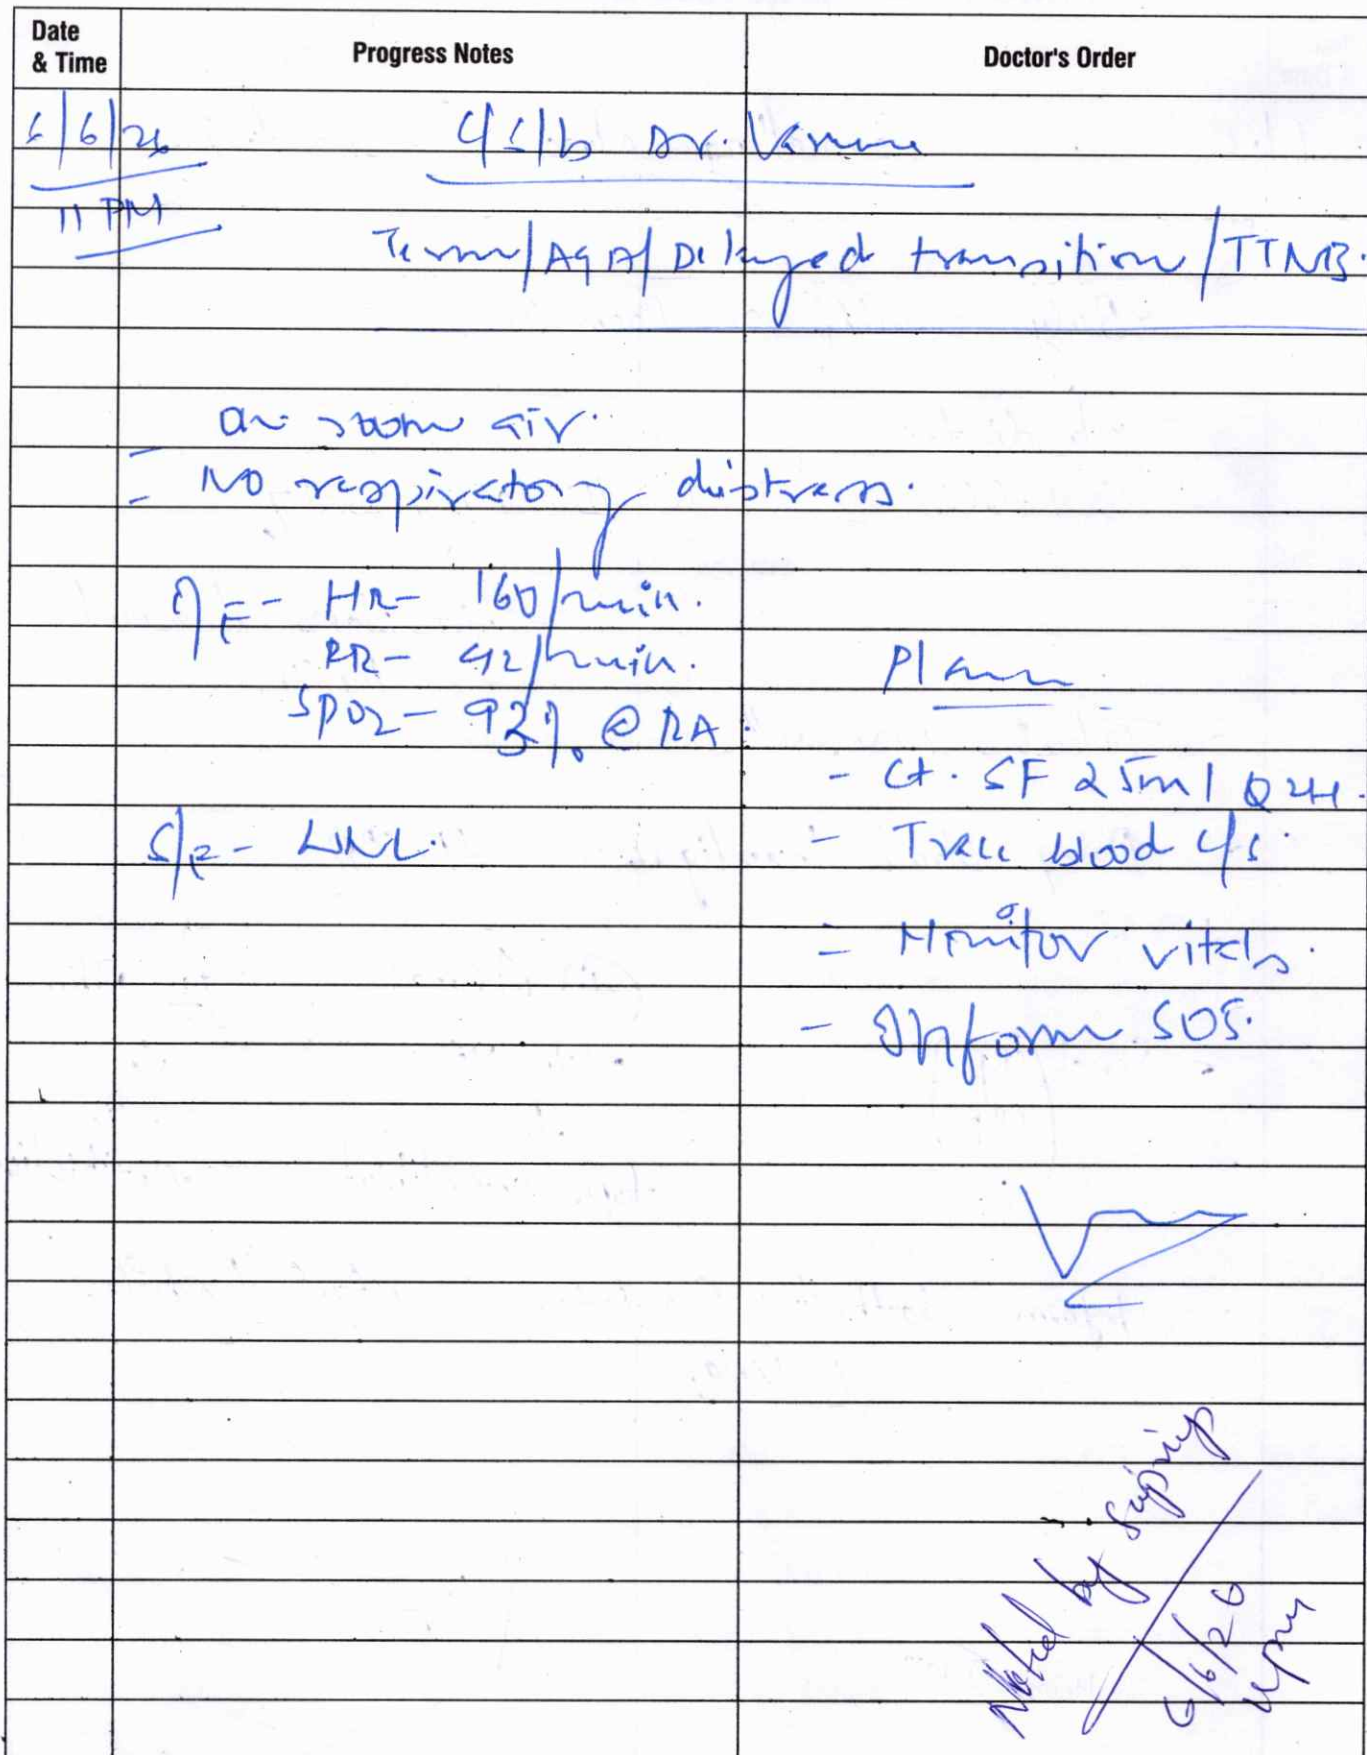 Date & Time
Progress Notes
Doctor's Order
6/6/26
11 PM
C/S/b Dr. Varun
Term/AGA/Delayed transition/TTNB.
on room air.
- No respiratory distress.
O/E - HR - 160/min.
RR - 42/min.
SPO2 - 93% @ RA.
S/E - WNL.
Plan
- Ct. SF 25ml Q2H.
- Trace blood c/s.
- Monitor vitals.
- Inform SOS.
Noted by
6/6/26
11pm